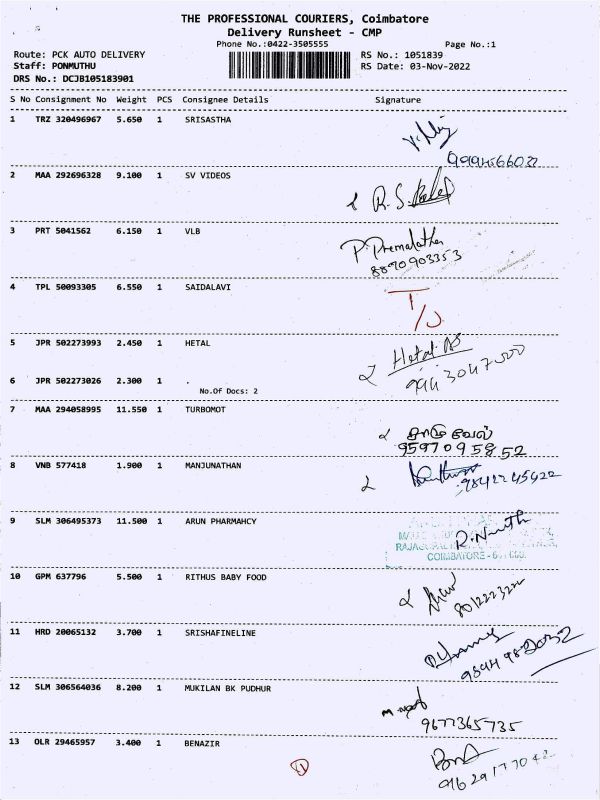 THE PROFESSIONAL COURIERS, Coimbatore
Delivery Runsheet - CMP
Phone No.:0422-3505555 Page No.:1
Route: PCK AUTO DELIVERY RS No.: 1051839
Staff: PONMUTHU RS Date: 03-Nov-2022
DRS No.: DCJB105183901
S No Consignment No Weight PCS Consignee Details Signature
1 TRZ 320496967 5.650 1 SRISASTHA
2 MAA 292696328 9.100 1 SV VIDEOS
R.S.
3 PRT 5041562 6.150 1 VLB
P. Premalatha
8870903353
4 TPL 50093305 6.550 1 SAIDALAVI
T/J
5 JPR 502273993 2.450 1 HETAL
Hetal
6 JPR 502273026 2.300 1 .
No.Of Docs: 2
9443047500
7 MAA 294058995 11.550 1 TURBOMOT
வேல்
9597095852
8 VNB 577418 1.900 1 MANJUNATHAN
9842245422
9 SLM 306495373 11.500 1 ARUN PHARMAHCY
COIMBATORE -
10 GPM 637796 5.500 1 RITHUS BABY FOOD
11 HRD 20065132 3.700 1 SRISHAFINELINE
12 SLM 306564036 8.200 1 MUKILAN BK PUDHUR
9677365735
13 OLR 29465957 3.400 1 BENAZIR
9629177042